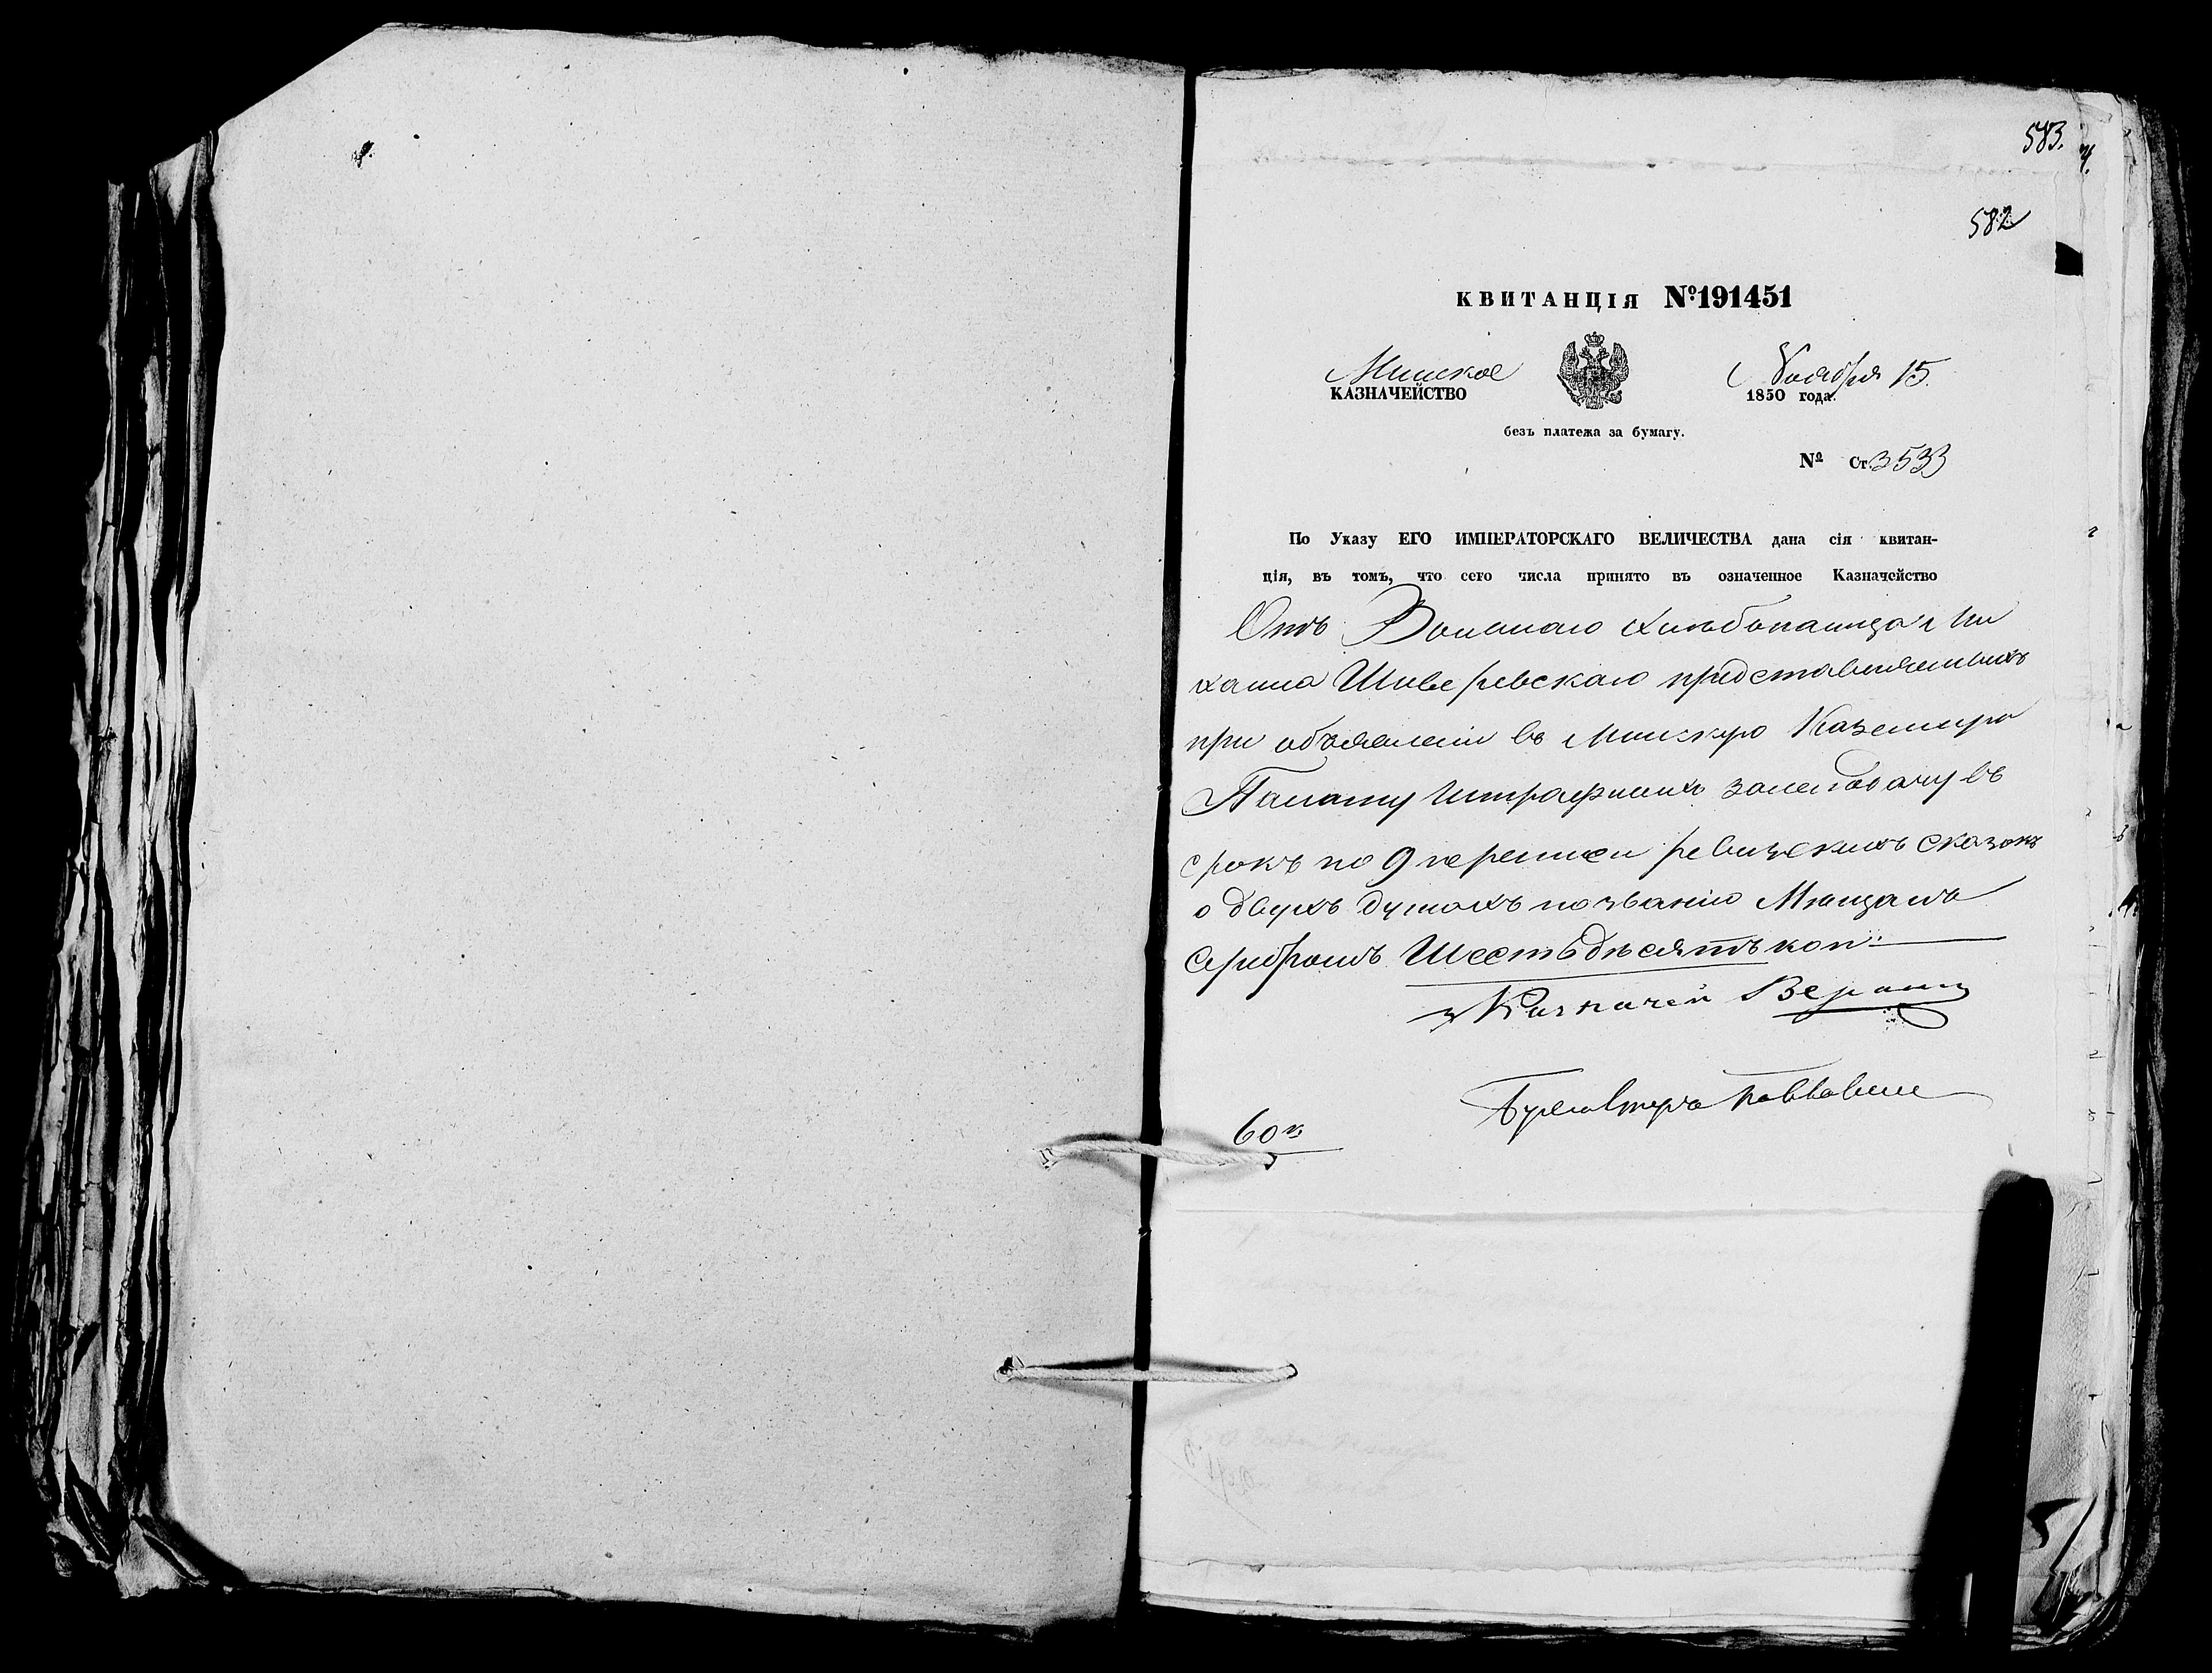 583.
582
КВИТАНЦІЯ №191451
Минское
КАЗНАЧЕЙСТВО
Ноября 15.
1850 года.
безъ платежа за бумагу.
№ Ст. 3533
По Указу ЕГО ИМПЕРАТОРСКАГО ВЕЛИЧЕСТВА дана сія квитан-
ція, въ томъ, что сего числа принято въ означенное Казначейство
Отъ Вольнаго хлебопашца Ми
хаила представленныхъ
при объявленіи въ Минскую Казенную
Палату Штрафныхъ за въ
срокъ по 9 переписи ревизскихъ сказокъ
о двухъ душахъ по званію Мещанъ
серебромъ Шестьдесятъ коп:
Казначей
Бухгалтеръ
60 к